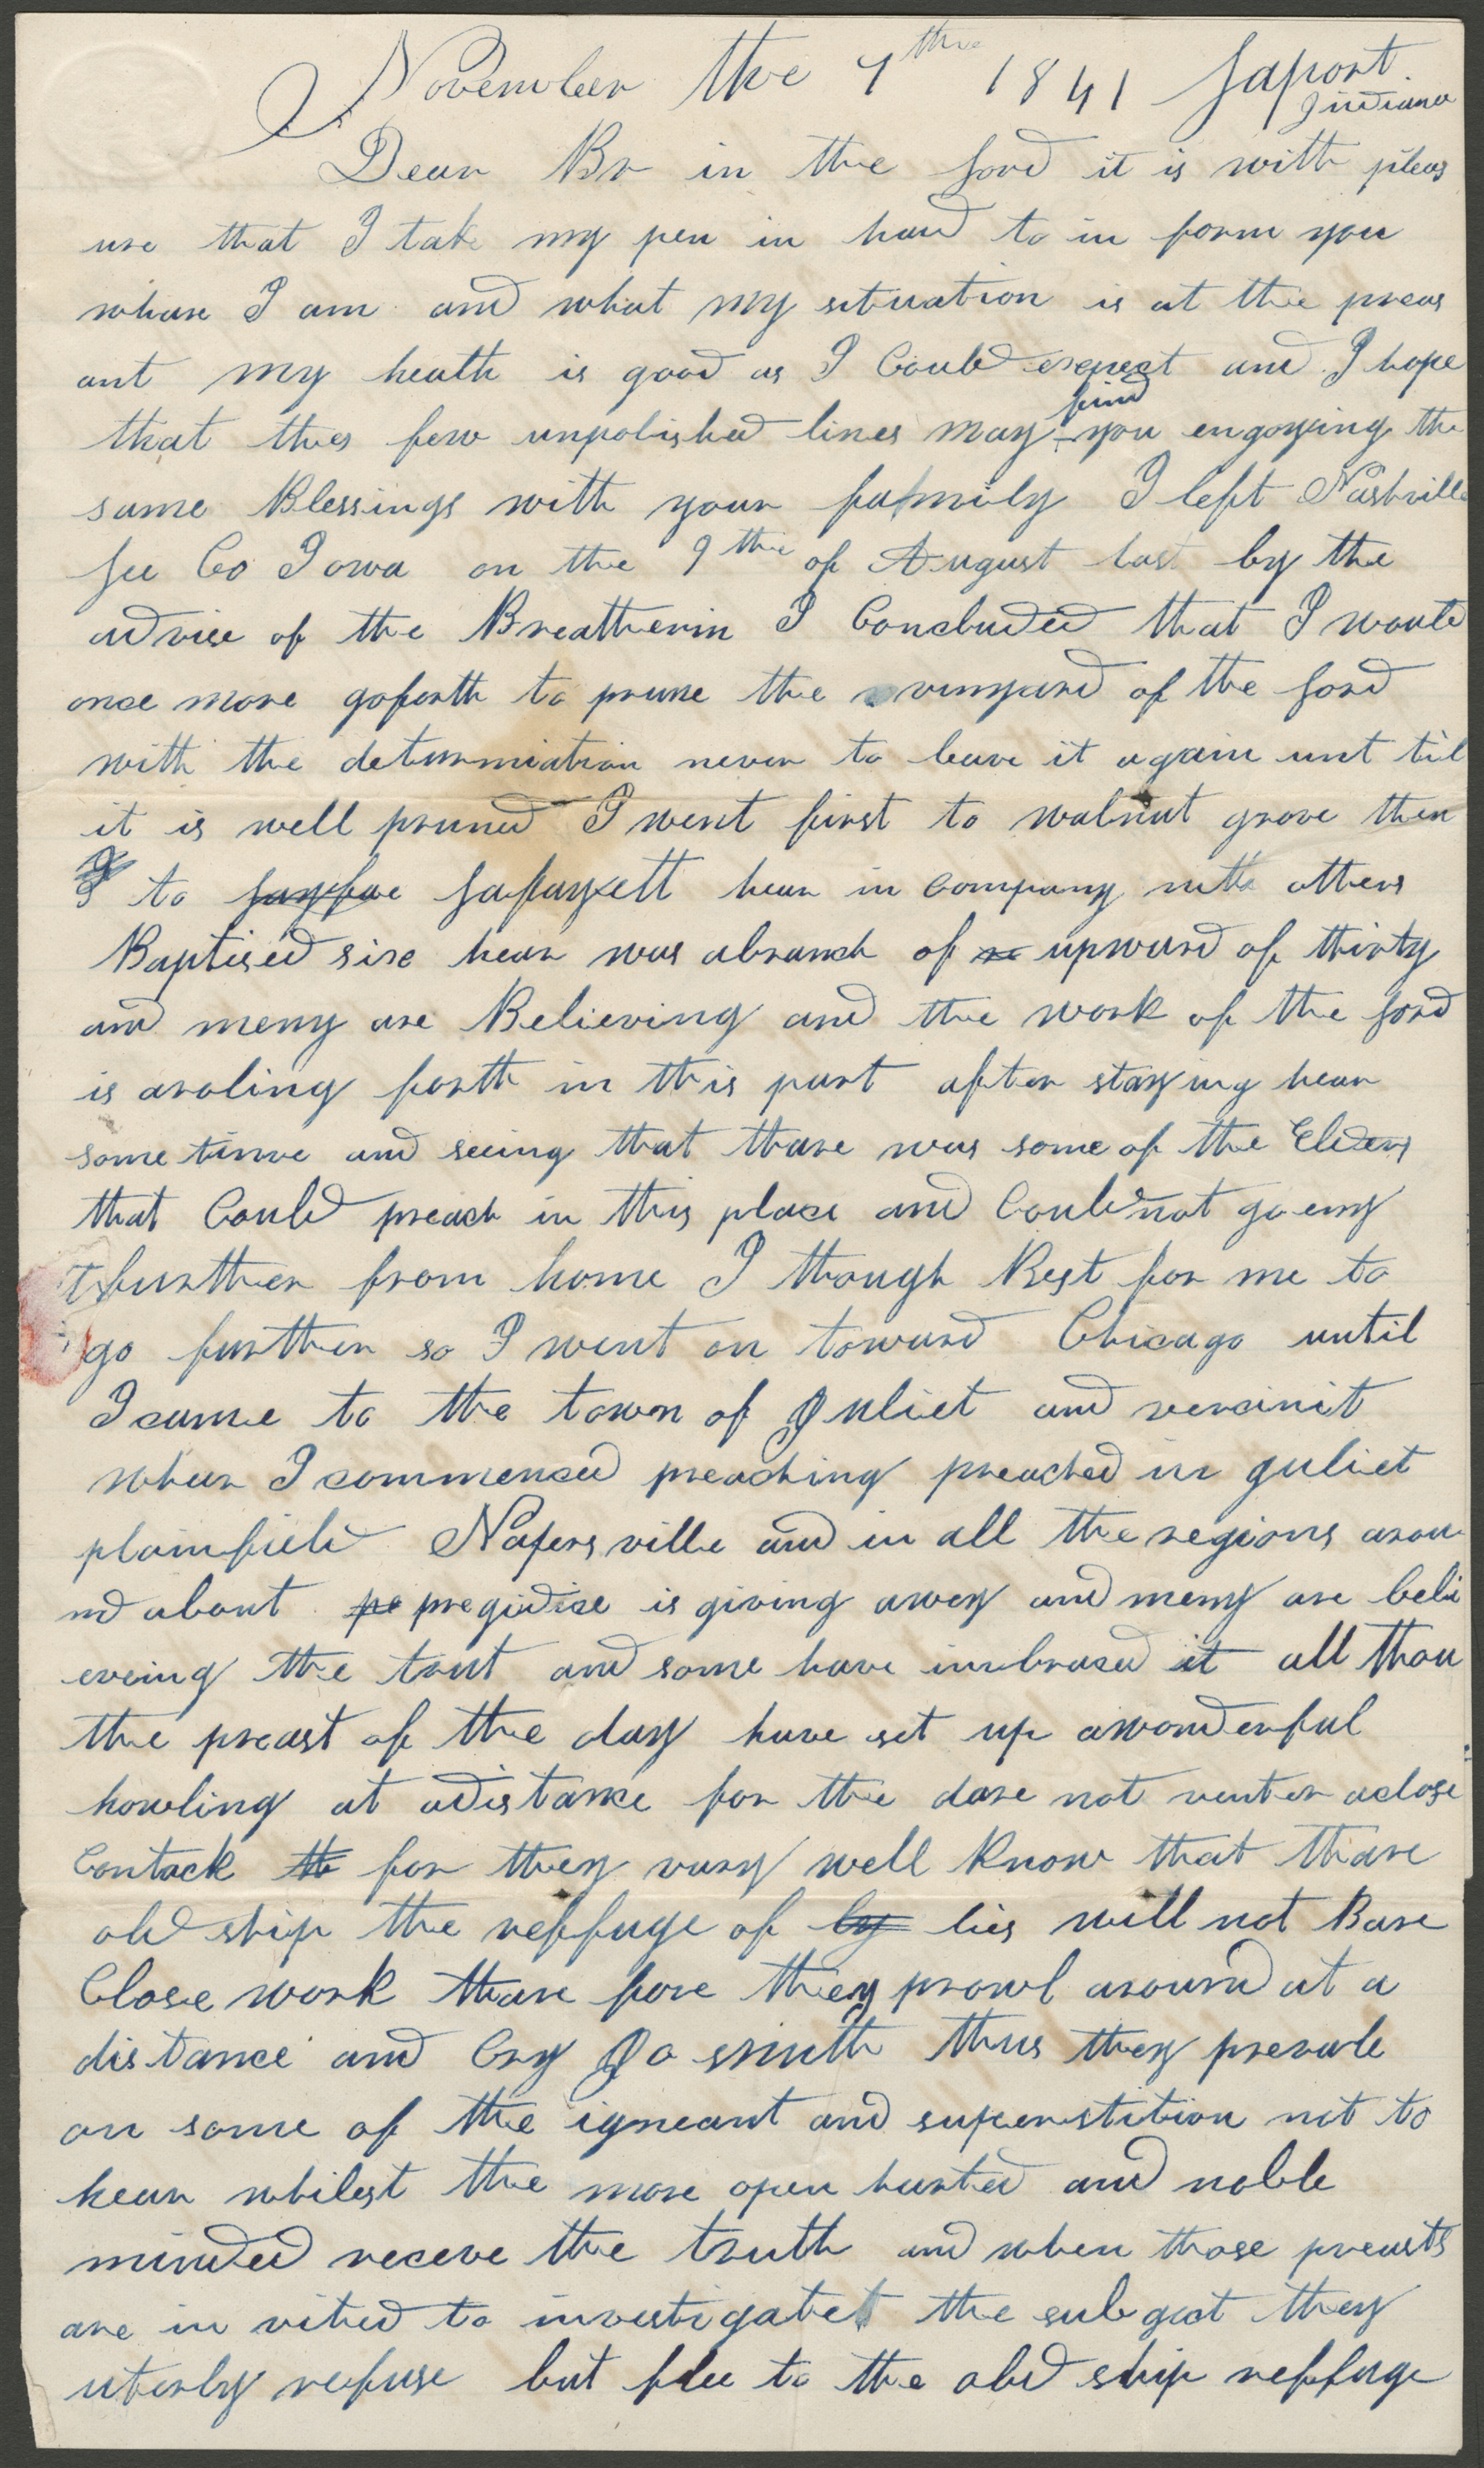 November the 7th 1841 Laport
Indiana
Dear Br in the Lord it is with pleas
ure that I take my pen in hand to in form you
whare I am and what my situation is at the preas
ant my heath is good as I Could expect and I hope
find
that thes few unpolished lines may you engoying the
same Blessings with your family I left Nashville
Lee Co Iowa on the 9th of August last by the
advise of the Breatherin I Concluded that I would
once more goforth to prune the vinyard of the Lord
with the determmiation never to leave it again unt til
it is well pruned I went first to walnut grove then
I to Lafayett hear in company with others
Baptised sixe hear was abranch of upward of thirty
and meny are Believing and the work of the Lord
is aroling forth in this part after staying hear
some time and seeing that thare was some of the Elders
that Could preach in this place and Could not go eny
further from home I though Best for me to
go further so I went on toward Chicago until
I came to the town of Juliet and vercinit
whear I commenced preaching preached in guliet
plainfield Napersville and in all the regions arou
nd about pregudice is giving awey and meny are beli
eveing the trut and some have imbraced it all thou
the preast of the day have set up awonderful
howling at adistance for the dare not venter aclose
Contack for they vary well know that thare
old ship the reffuge of lies will not Bare
Close work thare fore they prowl around at a
distance and Cry Jo smith thus they prevale
on some of the igneant and superstition not to
hear whilest the more open harted and noble
minded receve the truth and when those preasts
are in vited to investigate the subgect they
uterly refuse but flee to the old ship reffuge